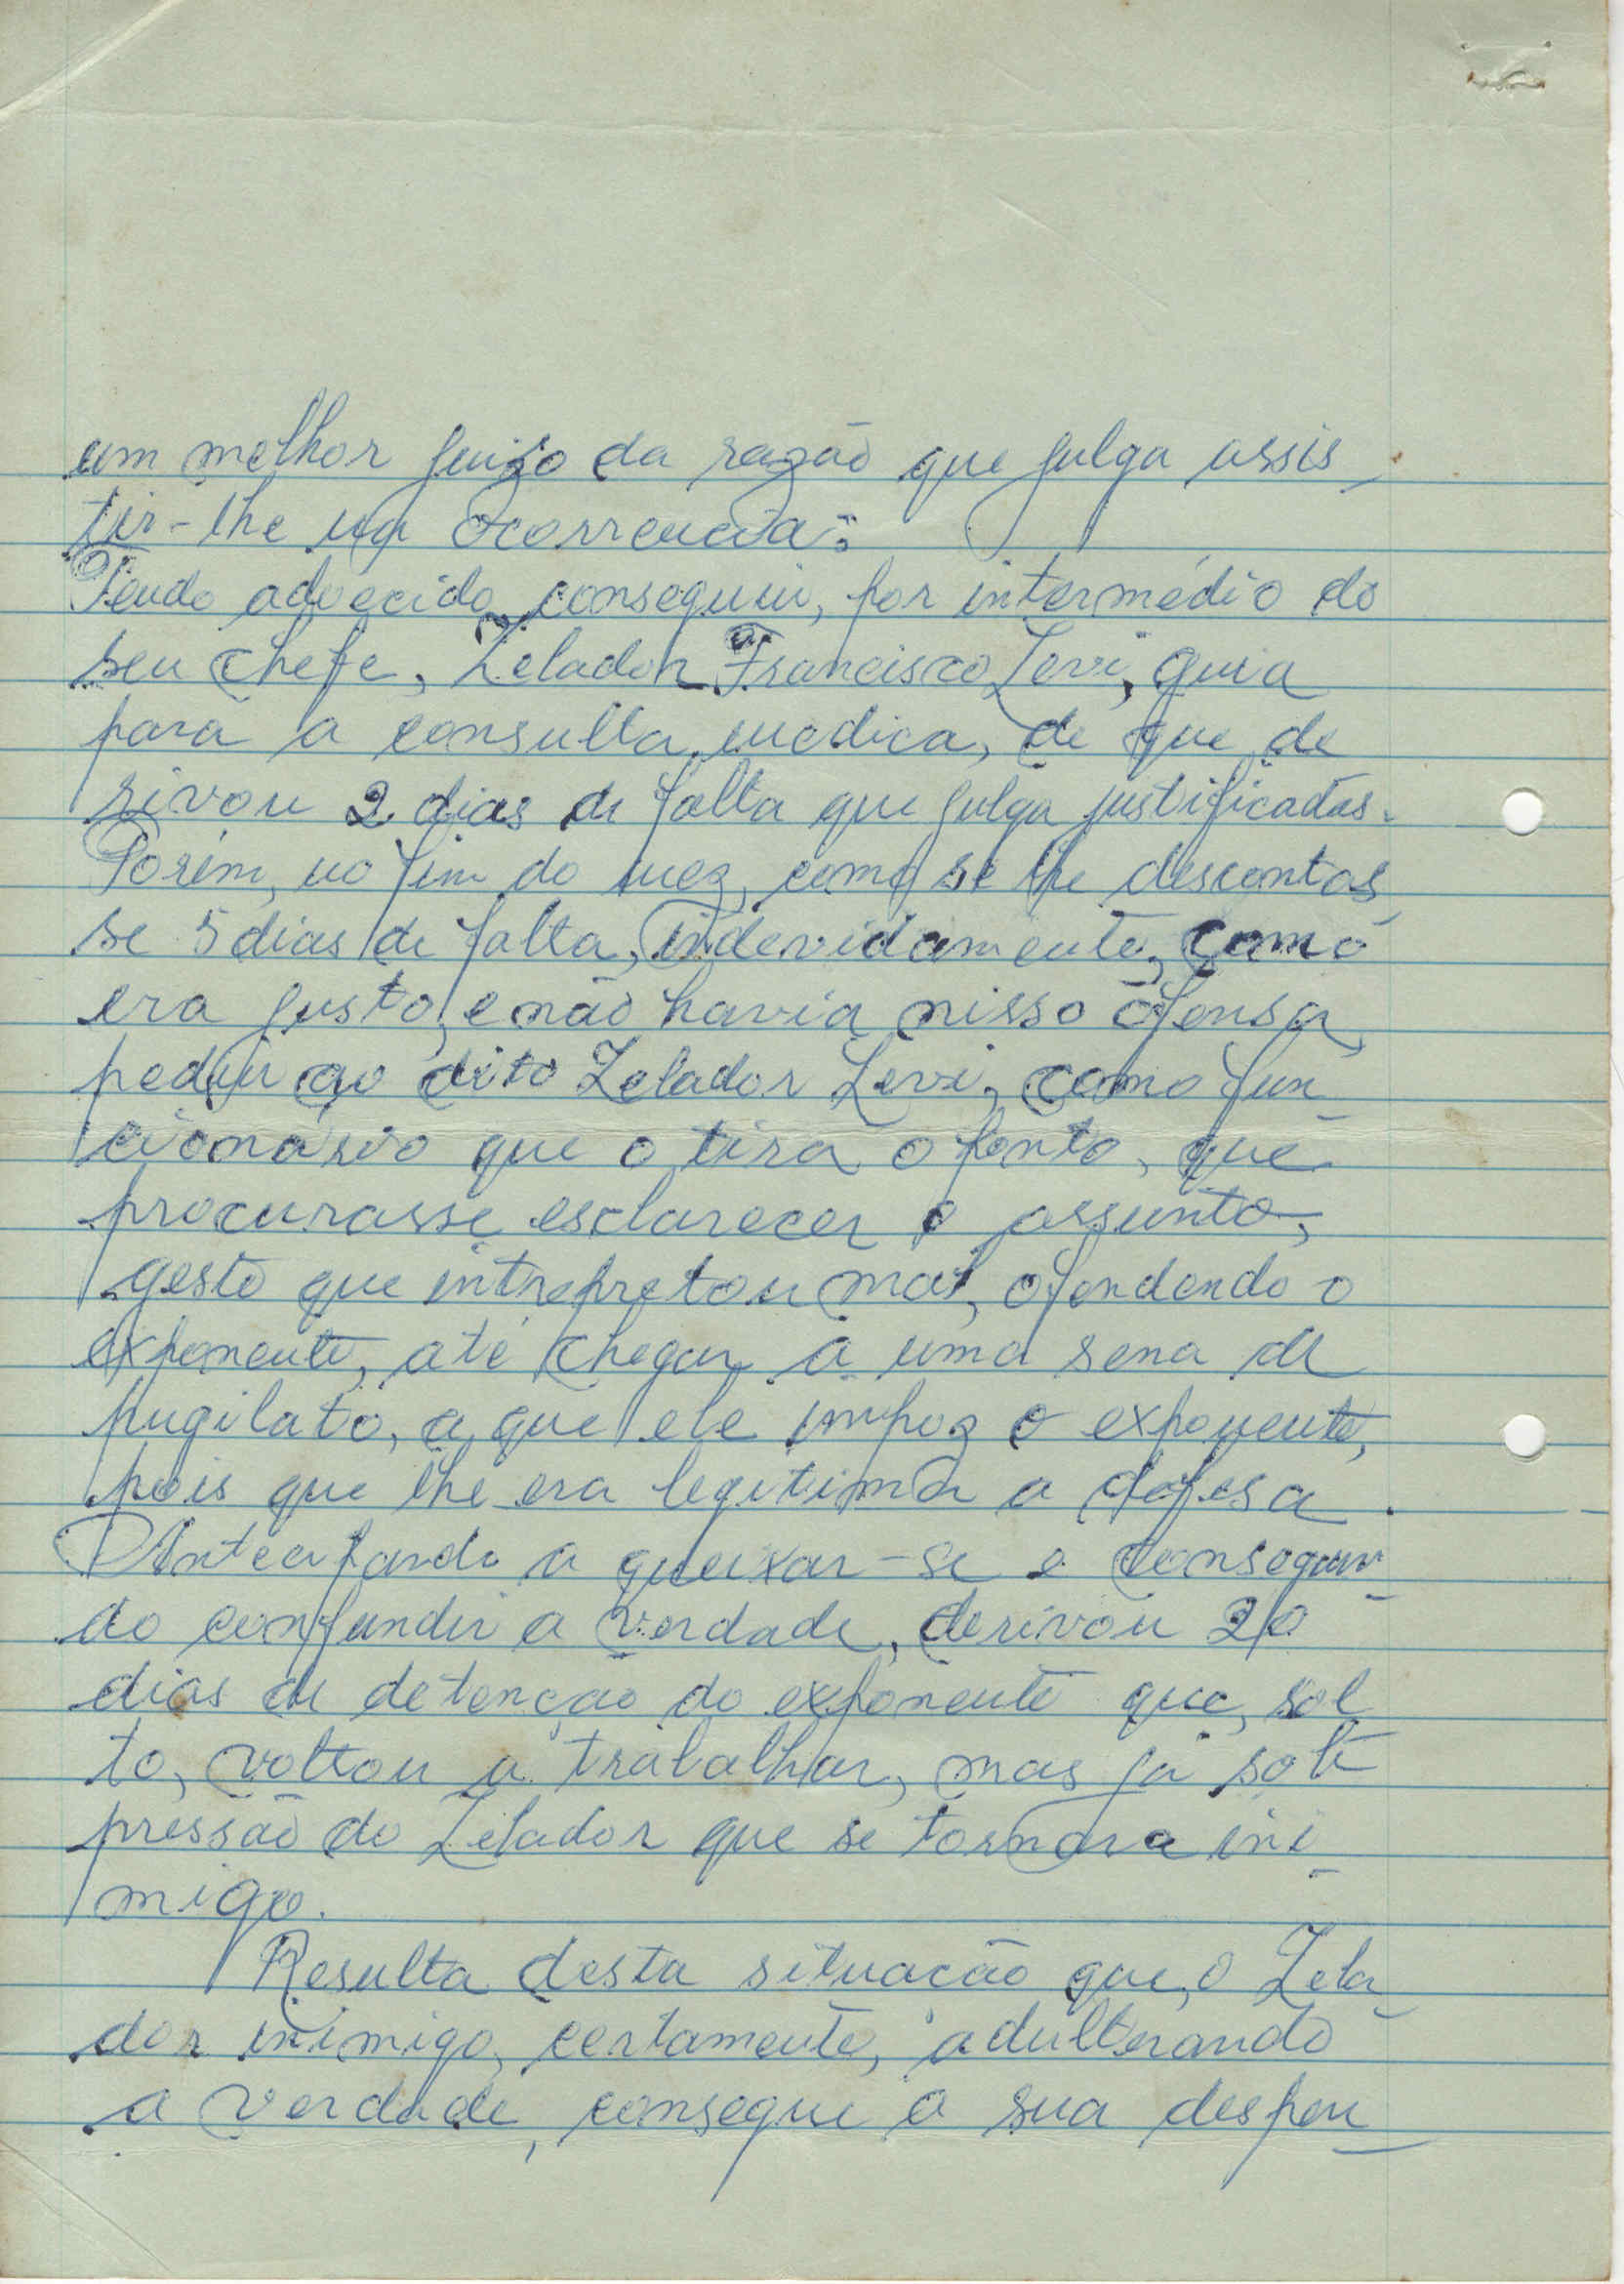 um melhor juizo da razão que julga assis_
tir-lhe na ocorrencia:
Tendo adoecido, conseguiu, por intermédio do
seu chefe, Zelador Francisco Levi, guia
para a consulta medica, de que de
rivou 2 dias de falta que julga justificadas.
Porém, no fim do mez, como se lhe descontas
se 5 dias de falta, indevidamente, como
era justo, e não havia nisso ofensa,
pediu ao dito Zelador Levi, como fun_
cionário que o tira o ponto, que
procurasse esclarecer o assunto,
gesto que intrepretou mal, ofendendo o
exponente, até chegar a uma sena de
pugilato, a que ele impoz o exponente,
pois que lhe era legitima a defesa.
Antecipando a queixar-se e conseguin_
do confundir a verdade, derivou 20
dias de detenção do exponente que, sol_
to, voltou a trabalhar, mas já sob
pressão do Zelador que se tornara ini_
migo.
Resulta desta situacão que, o Zela_
dor inimigo, certamente, adulterando
a verdade, consegue a sua despen_